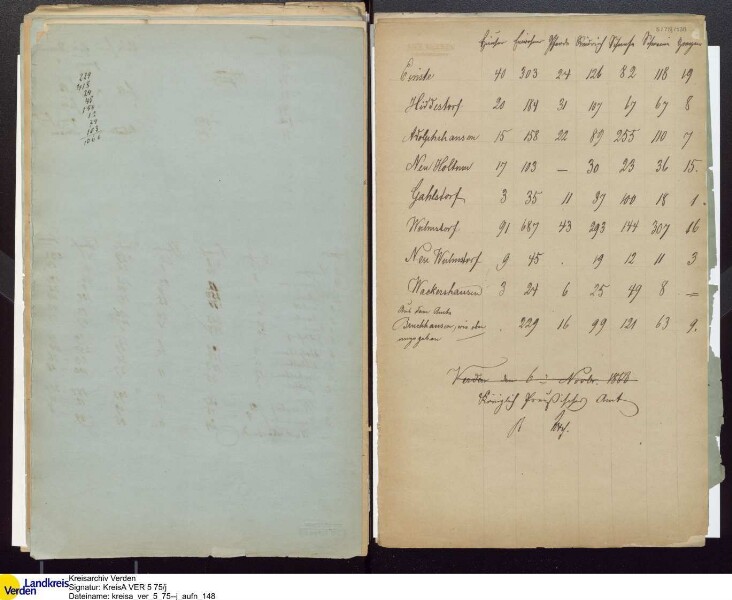 229
24
45
103
Häuser Pferde Rindvieh Schaafe Schweine Ziegen
Eissel 40 303 24 126 82 118 19
Hiddestorf 20 184 31 107 67 67 8
15 158 22 89 255 110 7
Neu Holtum 17 103 — 30 23 36 15.
Gahlstorf 3 35 11 37 100 18 1.
Wulmstorf 91 687 43 293 144 307 16
Neu Wulmstorf 9 45 . 19 12 11 3
Wackershausen 3 24 6 25 49 8 —
Aus dem Amte
Bruchhausen, wie oben
angegeben . 229 16 99 121 63 9.
Verden den 6 Novbr.
Königlich Preußisches Amt
Landkreis
Verden
Kreisarchiv Verden
Signatur: KreisA VER 5 75/j
Dateiname: kreisa_ver_5_75--j_aufn_148